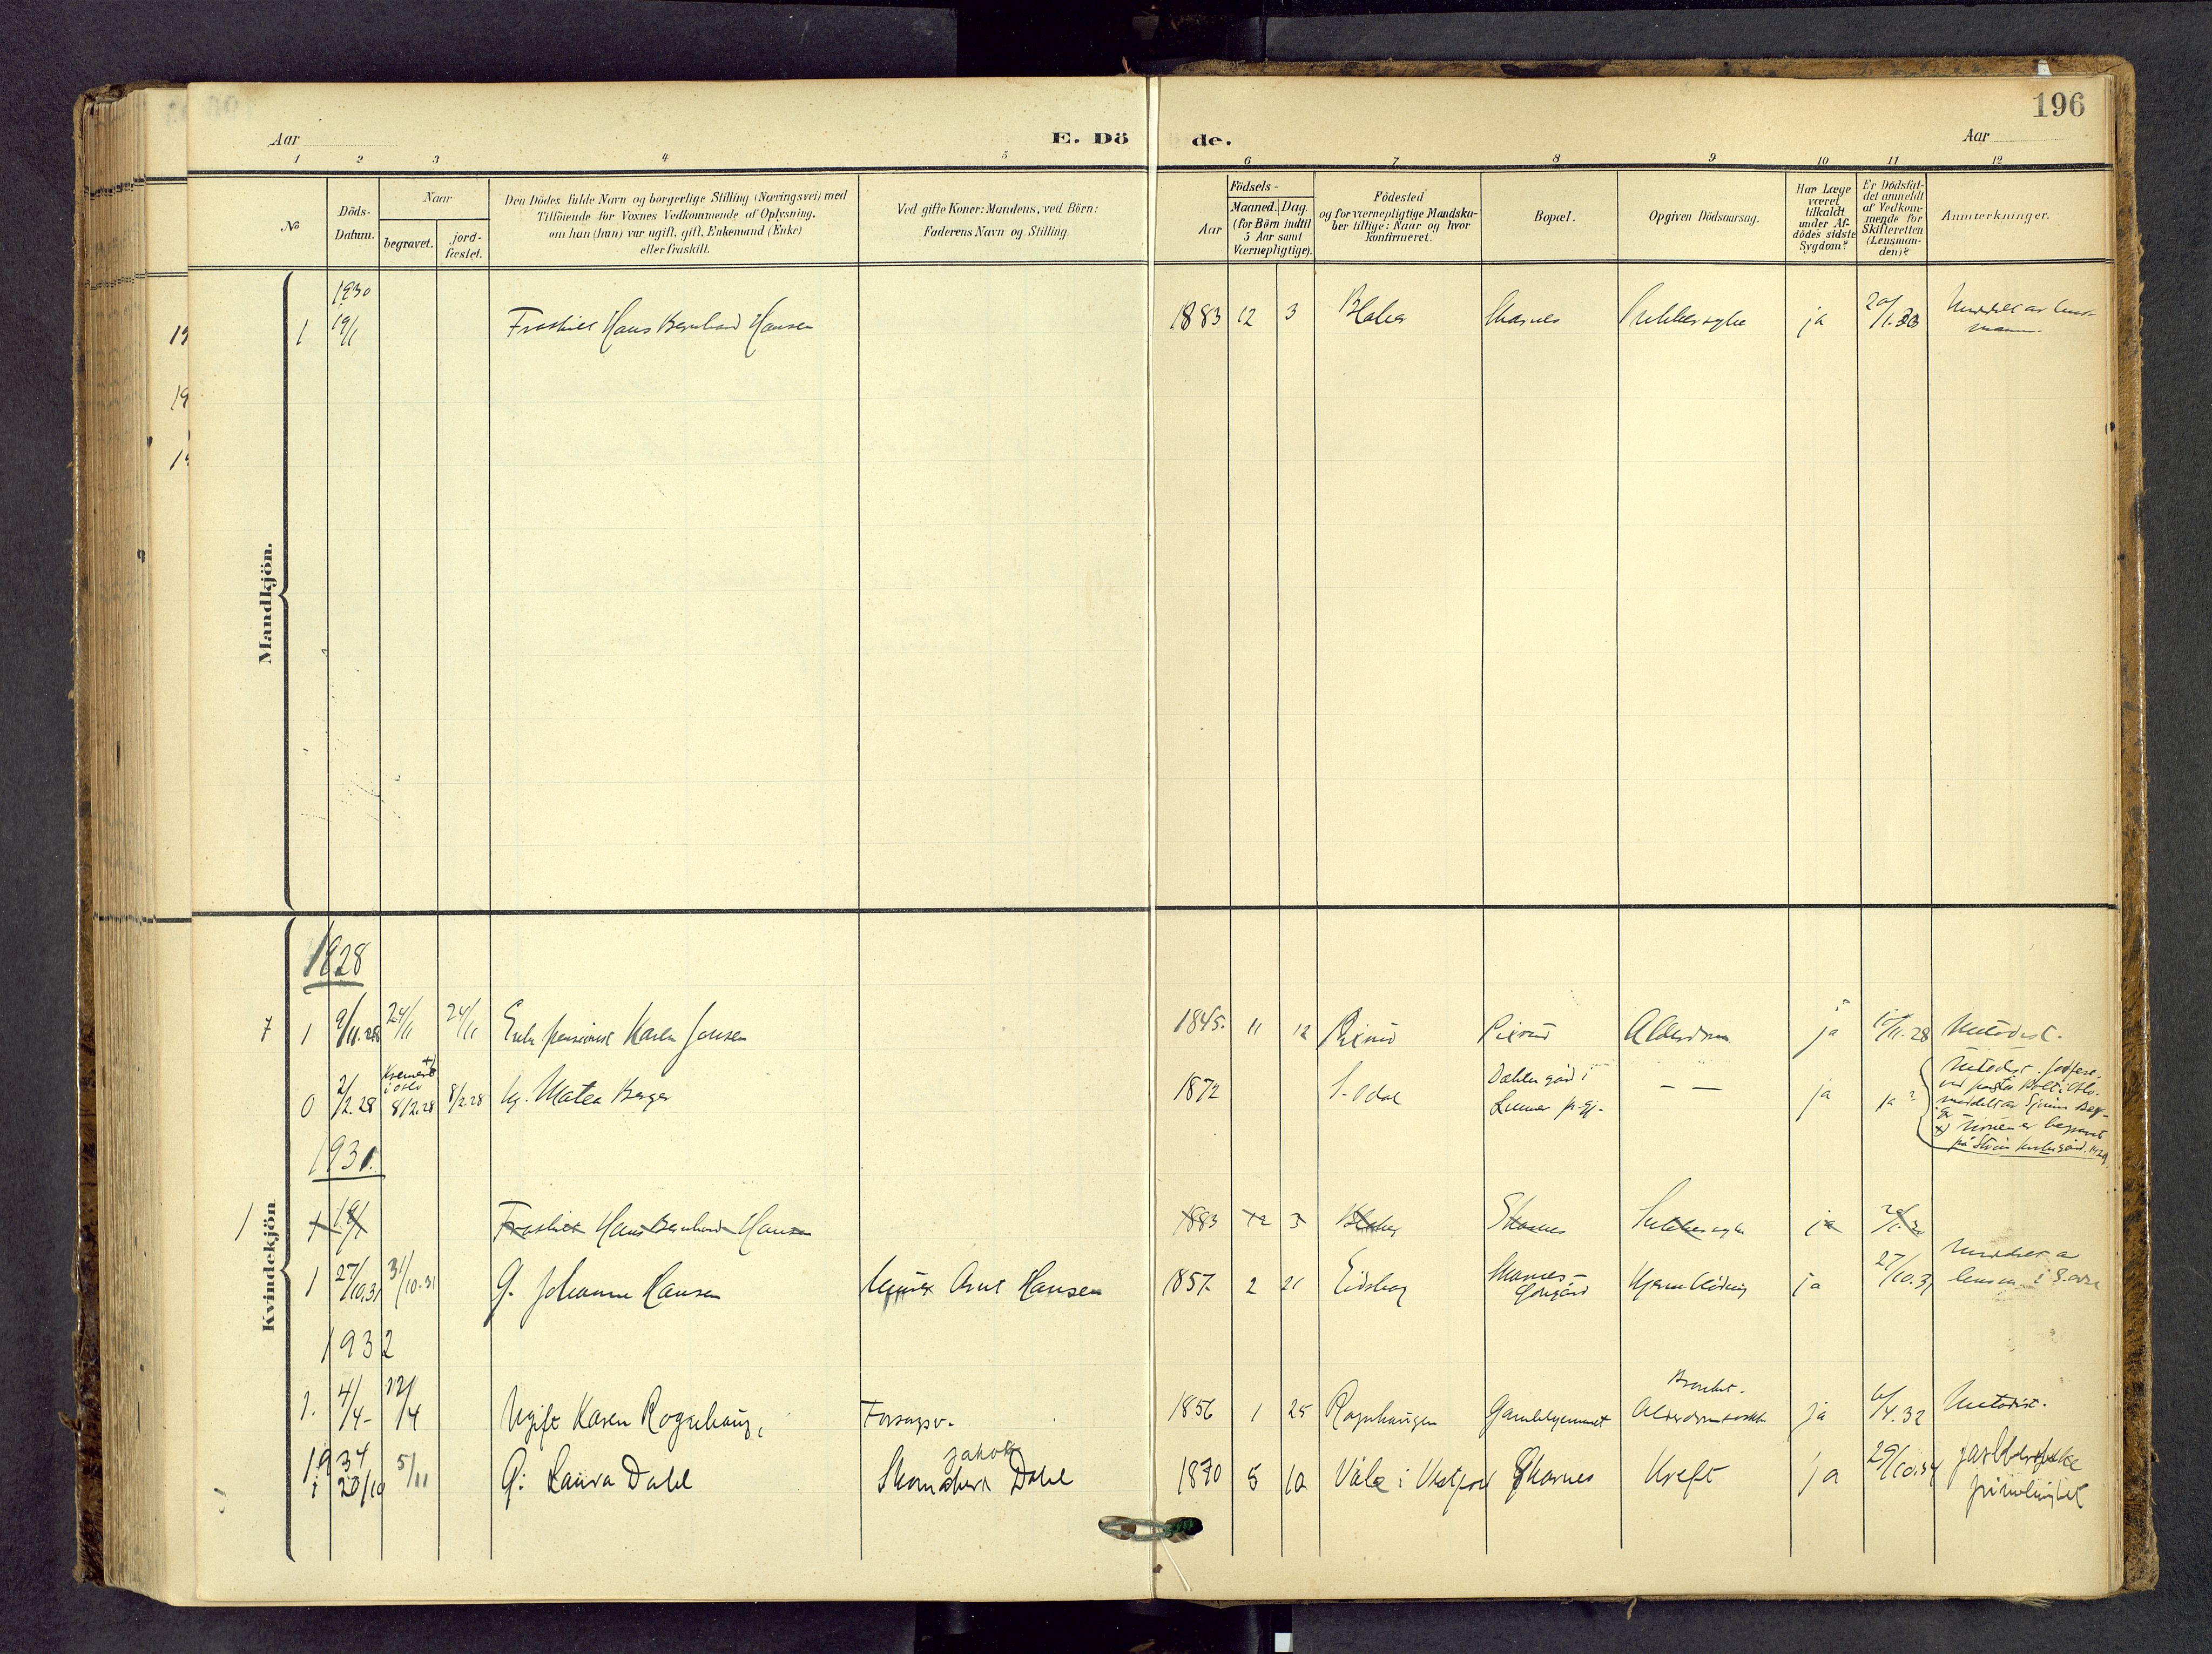 196
Aar
E. Dö de.
Aar
1 2 3 4 5 6 7 8 9 10 11 12
No
Döds-
Datum.
Naar
begravet.
jord-
fæstet.
Den Dödes fulde Navn og borgerlige Stilling (Næringsvei) med
Tilföiende for Voxnes Vedkommende af Oplysning,
om han (hun) var ugift, gift, Enkemand (Enke)
eller fraskilt.
Ved gifte Koner: Mandens, ved Börn:
Faderens Navn og Stilling.
Aar
Födsels-
Maaned. Dag.
(for Börn indtil
5 Aar samt
Værnepligtige).
Födested
og for værnepligtige Mandska-
ber tillige: Naar og hvor
konfirmeret.
Bopæl.
Opgiven Dödsaarsag.
Har Læge
været
tilkaldt
under Af-
dödes sidste
Sygdom?
Er Dödsfal-
det anmeldt
af Vedkom-
mende for
Skifteretten
(Lensman-
den)?
Anmærkninger.
Mandkjön.
1930
1 19/1 Fraskilt Hans Bernhard Hansen 1883 12 3 Blaker Skarnes Sukkersyke ja 20/1.30 Meddelt av lens-
mann.
Kvindekjön
1928
7 1 9/11.28 24/11 24/11 Enke pensionist Karen Jonsen 1845. 11 12 Alderdom ja 11.28 Metodist.
0 2/2.28 Kremert +)
i Oslo
8/2.28 8/2.28 Ug. Matea Berger 1872 S. Odal Dahlengård i
Lunner p.gj. — — ja ja? Metodist. Jordfest.
ved pastor i Oslo.
meddelt av
+) Urnen er begravet
på Strøm kirkegård 1929.
1931.
1 1 19/1 Fraskilt Hans Bernhard Hansen 1883 12 3 Blaker Skarnes Sukkersyke ja 20/1.30
1 27/10.31 31/10.31 G. Johanne Hansen Murer Arnt Hansen 1857. 2 21 Eidsberg Skarnes- Hjerneblödning ja 27/10.31 Meddelt a
lensm. i S. Odal
1932
1. 4/4- 12/4 Ugift Karen Rognhaug, Forsørgsv. 1856 1 25 Rognhaugen Gamlehjemmet Bronkit.
Alderdomssvakh ja 6/4.32 Metodist.
1934
1 20/10 5/11 G: Laura Dahl Skomaker Jakob Dahl 1870 5 10 Våle i Vestfold Skarnes Kreft ja 29/10.34 Jarlsbergske
frimenighet